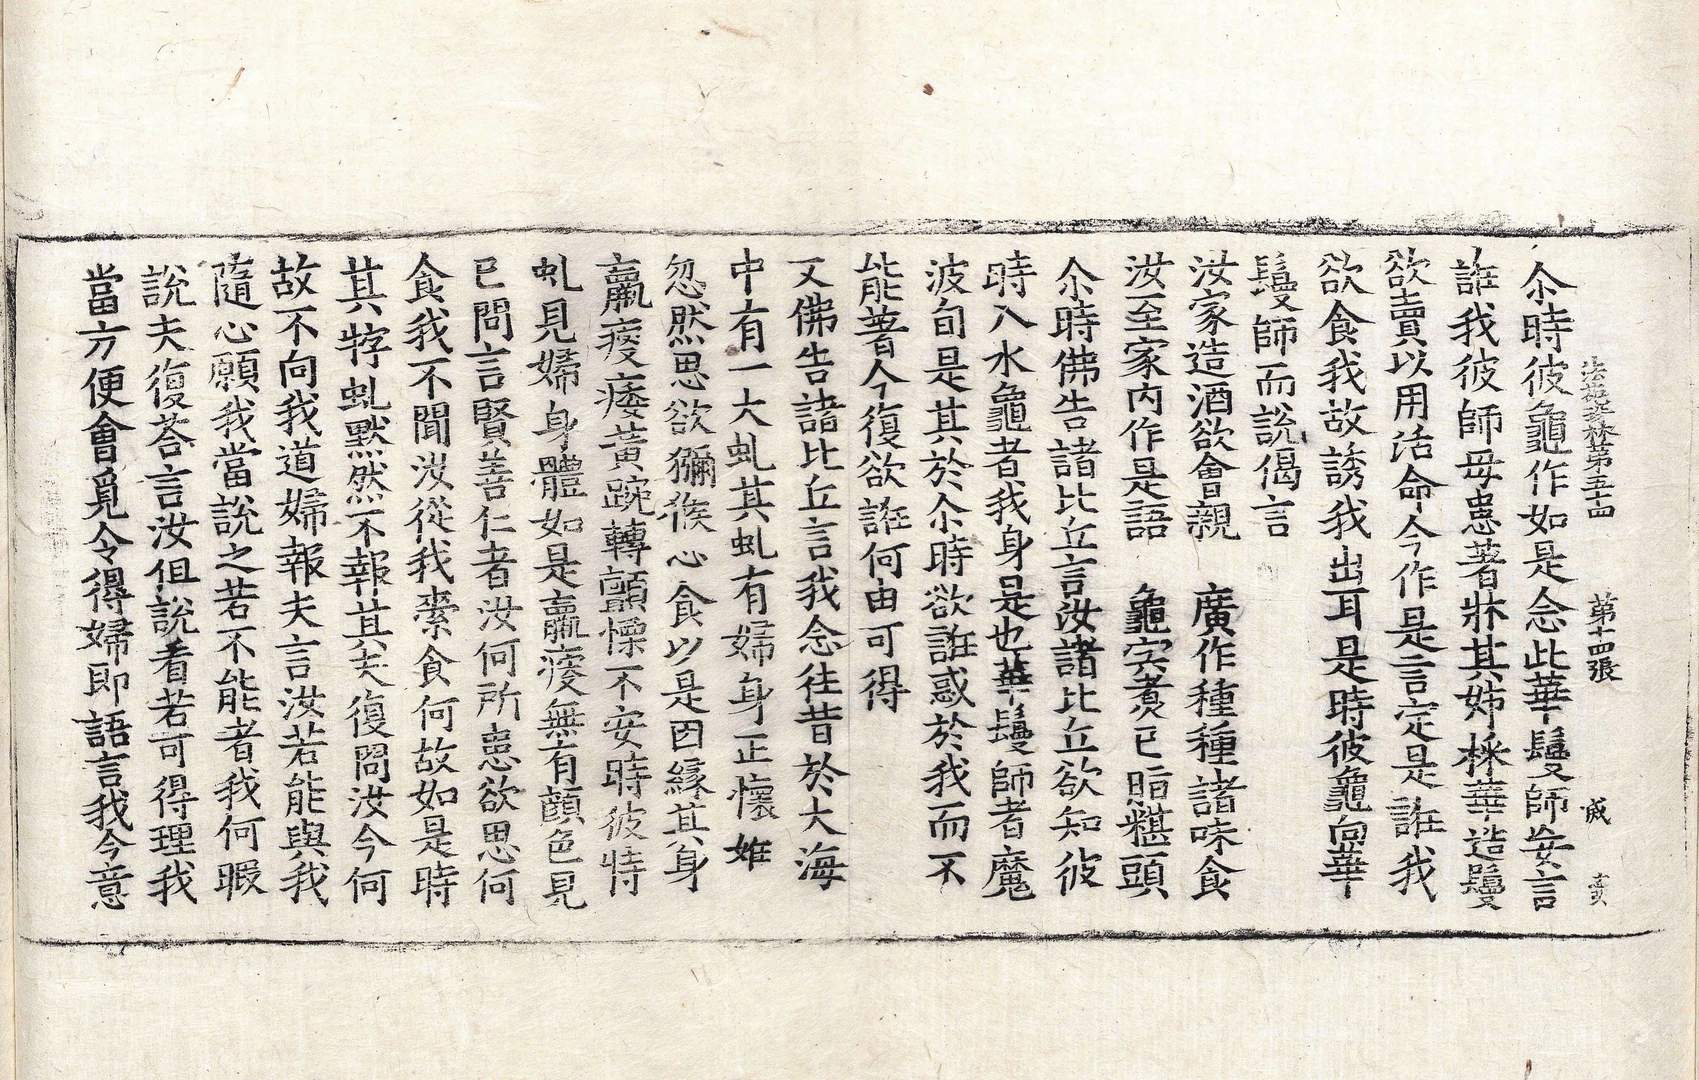 法苑珠林第五十四 第十四張 感
尒時彼龜作如是念此華鬘師妄言
誑我彼師母患著牀其姊採華造鬘
欲賣以用活命今作是言定是誑我
欲食我故誘我出耳是時彼龜向華
鬘師而說偈言
汝家造酒欲會親 廣作種種諸味食
汝至家內作是語 龜宍煮已脂糂頭
尒時佛告諸比丘言汝諸比丘欲知彼
時入水龜者我身是也華鬘師者魔
波旬是其於尒時欲誑惑於我而不
能著今復欲誑何由可得
又佛告諸比丘言我念往昔於大海
中有一大虬其虬有婦身正懷妊
忽然思欲獼猴心食以是因緣其身
羸瘦痿黃踠轉顫慄不安時彼特
虬見婦身體如是羸瘦無有顏色見
已問言賢善仁者汝何所患欲思何
食我不聞汝從我索食何故如是時
其牸虬默然不報其夫復問汝今何
故不向我道婦報夫言汝若能與我
隨心願我當說之若不能者我何暇
說夫復荅言汝但說看若可得理我
當方便會覓令得婦即語言我今意